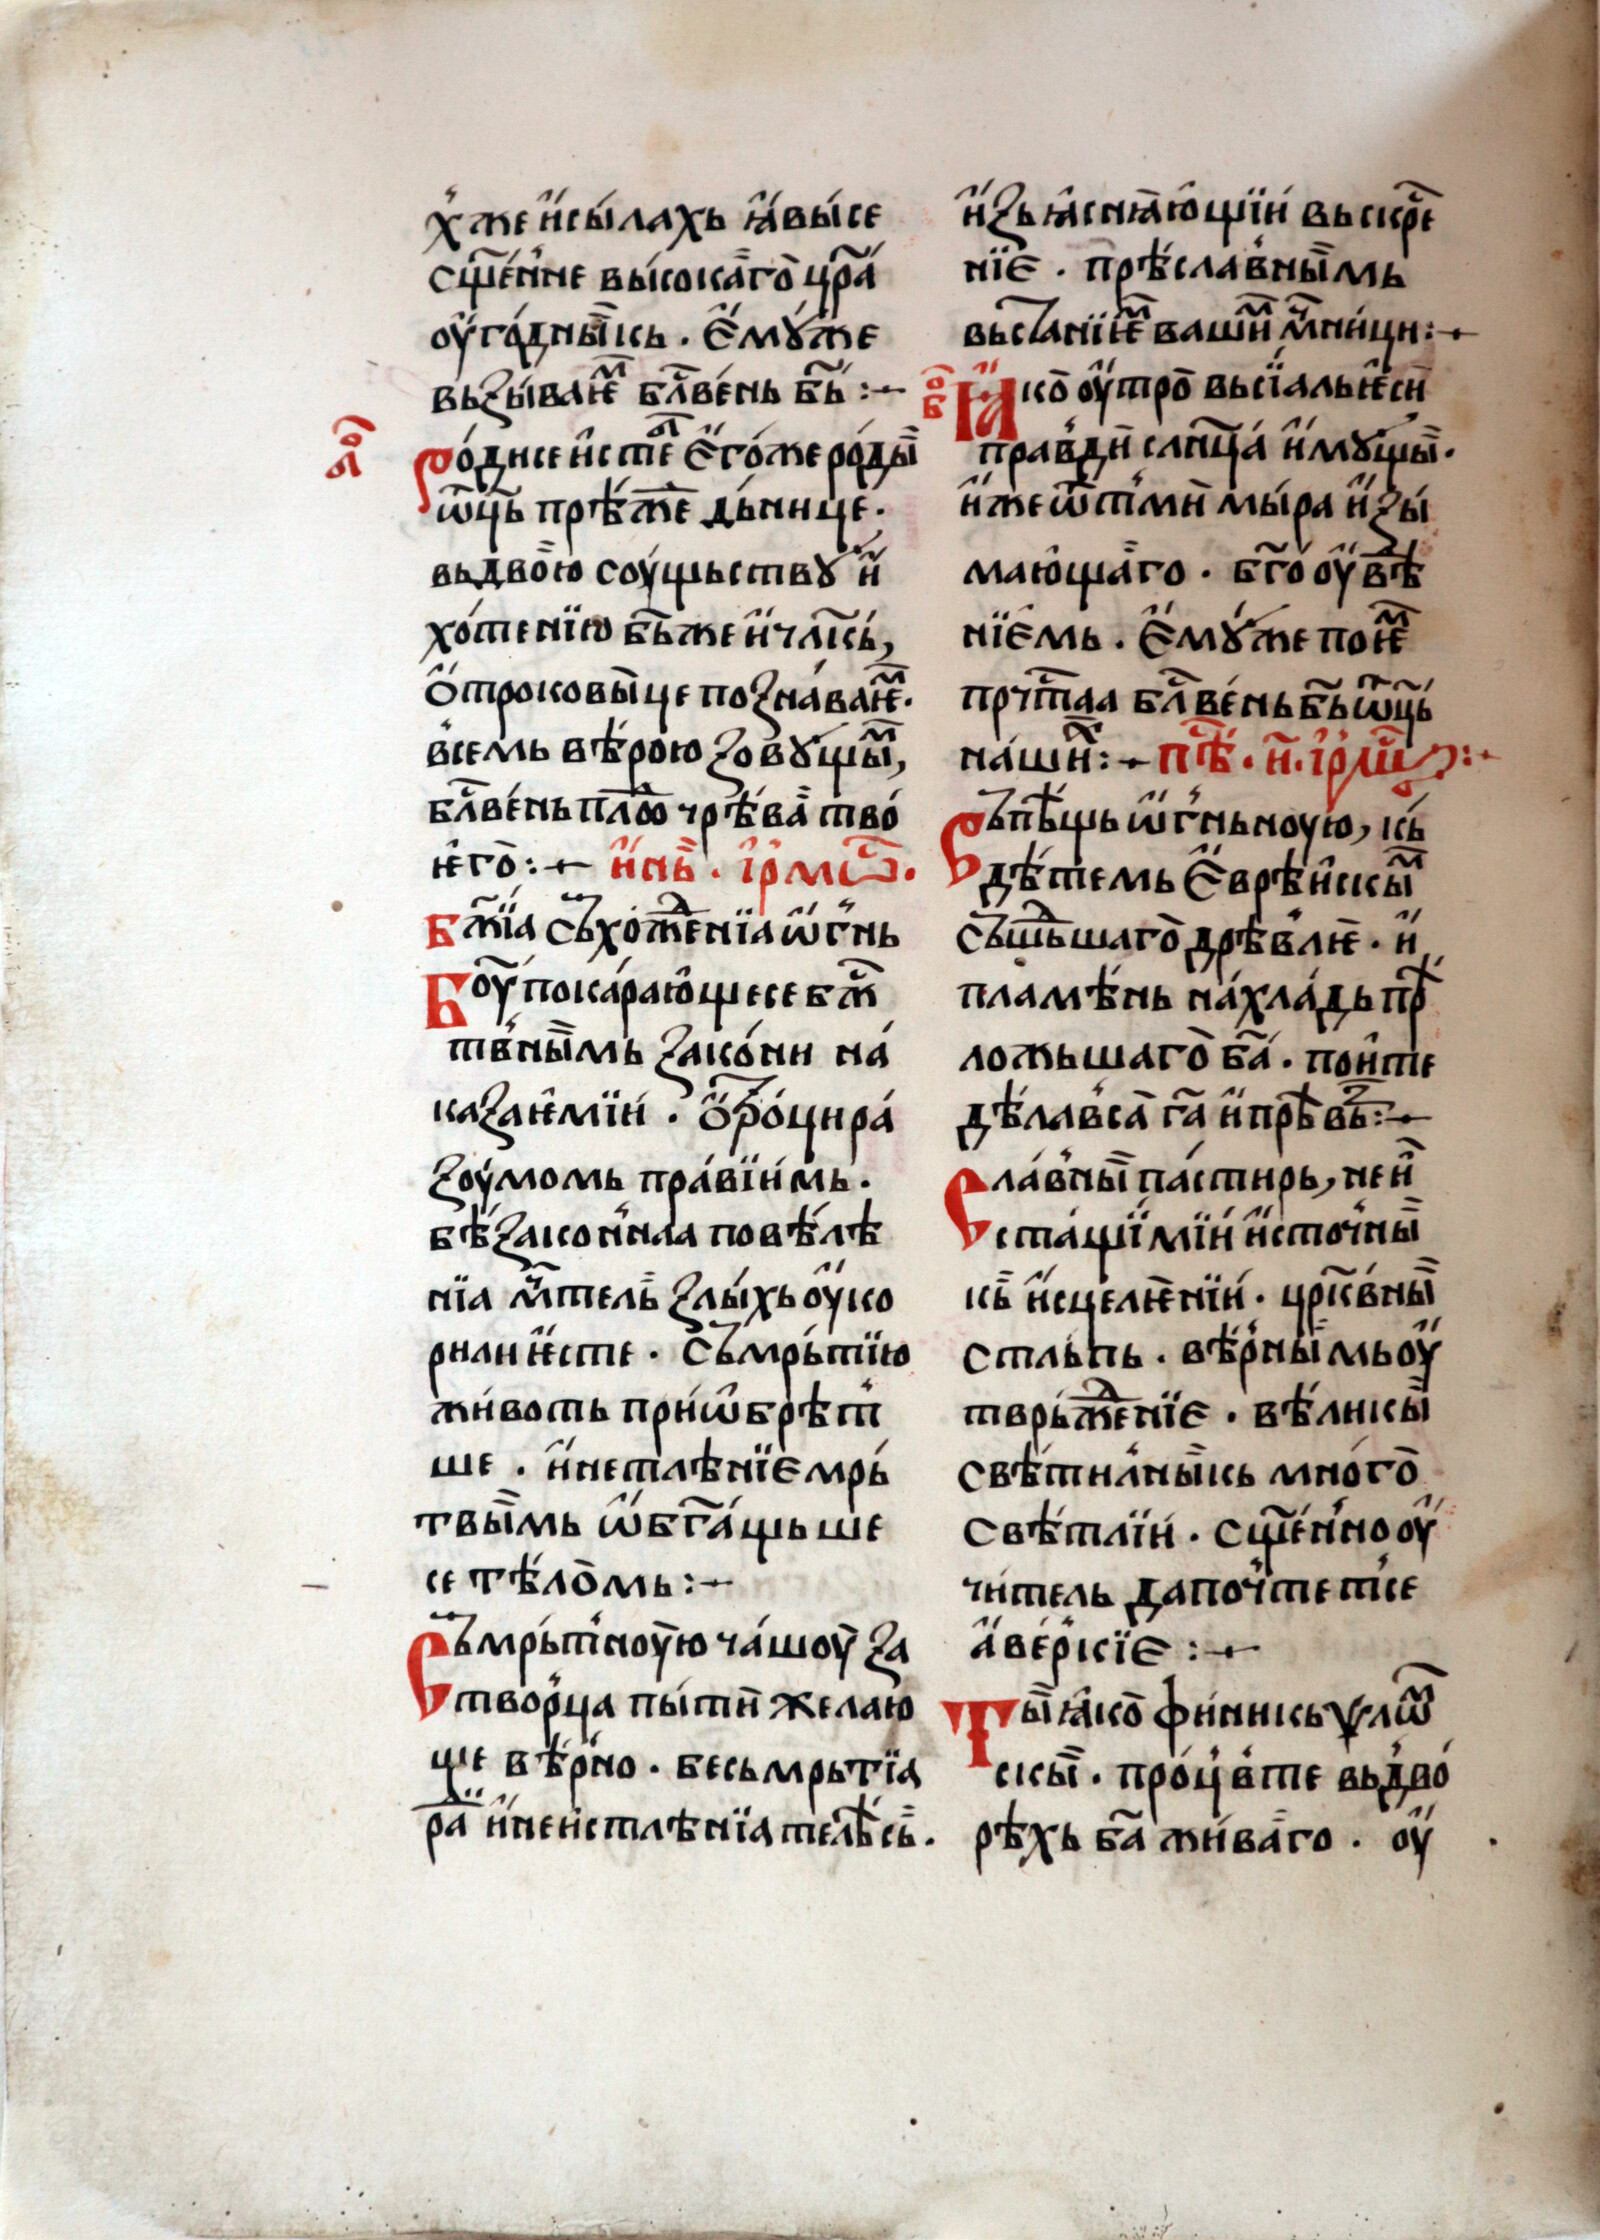 х҆же и҆сы́лахь ꙗ҆вы́се
сщ҃е́нне высока́го цр҃а
оу҆го́дныкь · Є҆мꙋ́же
вьзы́ваѥⷨ бл҃ве́нь б҃ь :~
бо҃
Ро́дисе и҆сте Є҆го́же роды̀
ѿц҃ь прѣ́жⷣе дь́нице ·
вьдво́ю соу́щьствꙋ и҆
хо́тенїю б҃ь же и҆ чл҃кь,
О҆троковы̀це позна́ваѥⷨ ·
все́мь вѣ́рою зовꙋ́щыⷨ,
бл҃ве́нь плⷪ҇ чрѣ́ва тво́
ѥго̀ :~ и҆нь · і҆рмѡⷭ ·
Бж҃їа сьхожⷣенїа ѡ҆́гнь
Боу покара́ющесе бжⷭ
твны̀мь зако́ни на́
каза́ѥмїи · ѻ҆троци ра́
зоу́момь пра́вїимь ·
бѣ́законнаа повѣ́лѣ
нїа мⷱ҇тель злы́хь оу҆ко
рили ѥ҆сте · Сьмрь́тїю
животь при́ѡбрѣ́т
ше · и҆ нетлѣ́нїє мрь́
твы̀мь ѡ҆бг҃а́щьше
се тѣ́ломь :~
Сьмрь́тноую ча́шоу за
творца пы́ти жела́ю
ще вѣ́рно · бесьмрь́тїа
ра и҆ неи҆стлѣ́нїа телѣ́сь ·
и҆зьꙗсня́ющїи вьскрⷭе
нїе · прѣ́славны̀мь
вьста́нїѥⷨ ва́шиⷨ мⷱ҇ници :~
бо҃
Ꙗ҆ко̀ оу҆тро̀ вьсїа́ль ѥ҆си
пра́вди сл҃нца и҆мꙋщы̀ ·
и҆же ѿ тми́ мы́ра и҆зы́
ма́юща̀го · бг҃о оу҆вѣ
нїємь · Є҆мꙋ́же поѥⷨ
прⷱ҇таа бл҃ве́нь б҃ь ѿц҃ь
на́шиⷯ :~ пⷭ҇ѣ · и҃ · і҆рмⷭ :~
Сьпѣ́щь ѡ҆́гньноую, кь
дѣ́темь Є҆врѣ́искыⷨ
сьшⷣьшаго̀ дрѣ́влѥ · и҆
пламѣ́нь на́хла́дь прⷣ
ложьшаго̀ б҃а · по́ите
дѣ́ла вса̀ г҃а и҆ прѣвьⷥ :~
Сла́вны̀ па́стирь, не и҆
ста́щїмїи и҆сточны̀
кь и҆сцелѥ́нїи · црⷦ҇вны̀
стльпь · вѣ́рны̀мь оу҆
тврьжⷣенїе · вѣ́ликы̀
свѣ́тилны̀кь мно́го̀
свѣ́тлїи · сщ҃е́нно оу҆
чи́тель да по́чтетсе
а҆ве́ркїє :~
Ты̀ ꙗ҆ко̀ фи́никь ѱлѡⷨ
скы̀ · процвте вьдво́
рѣхь б҃а жи́ва̀го · оу҆